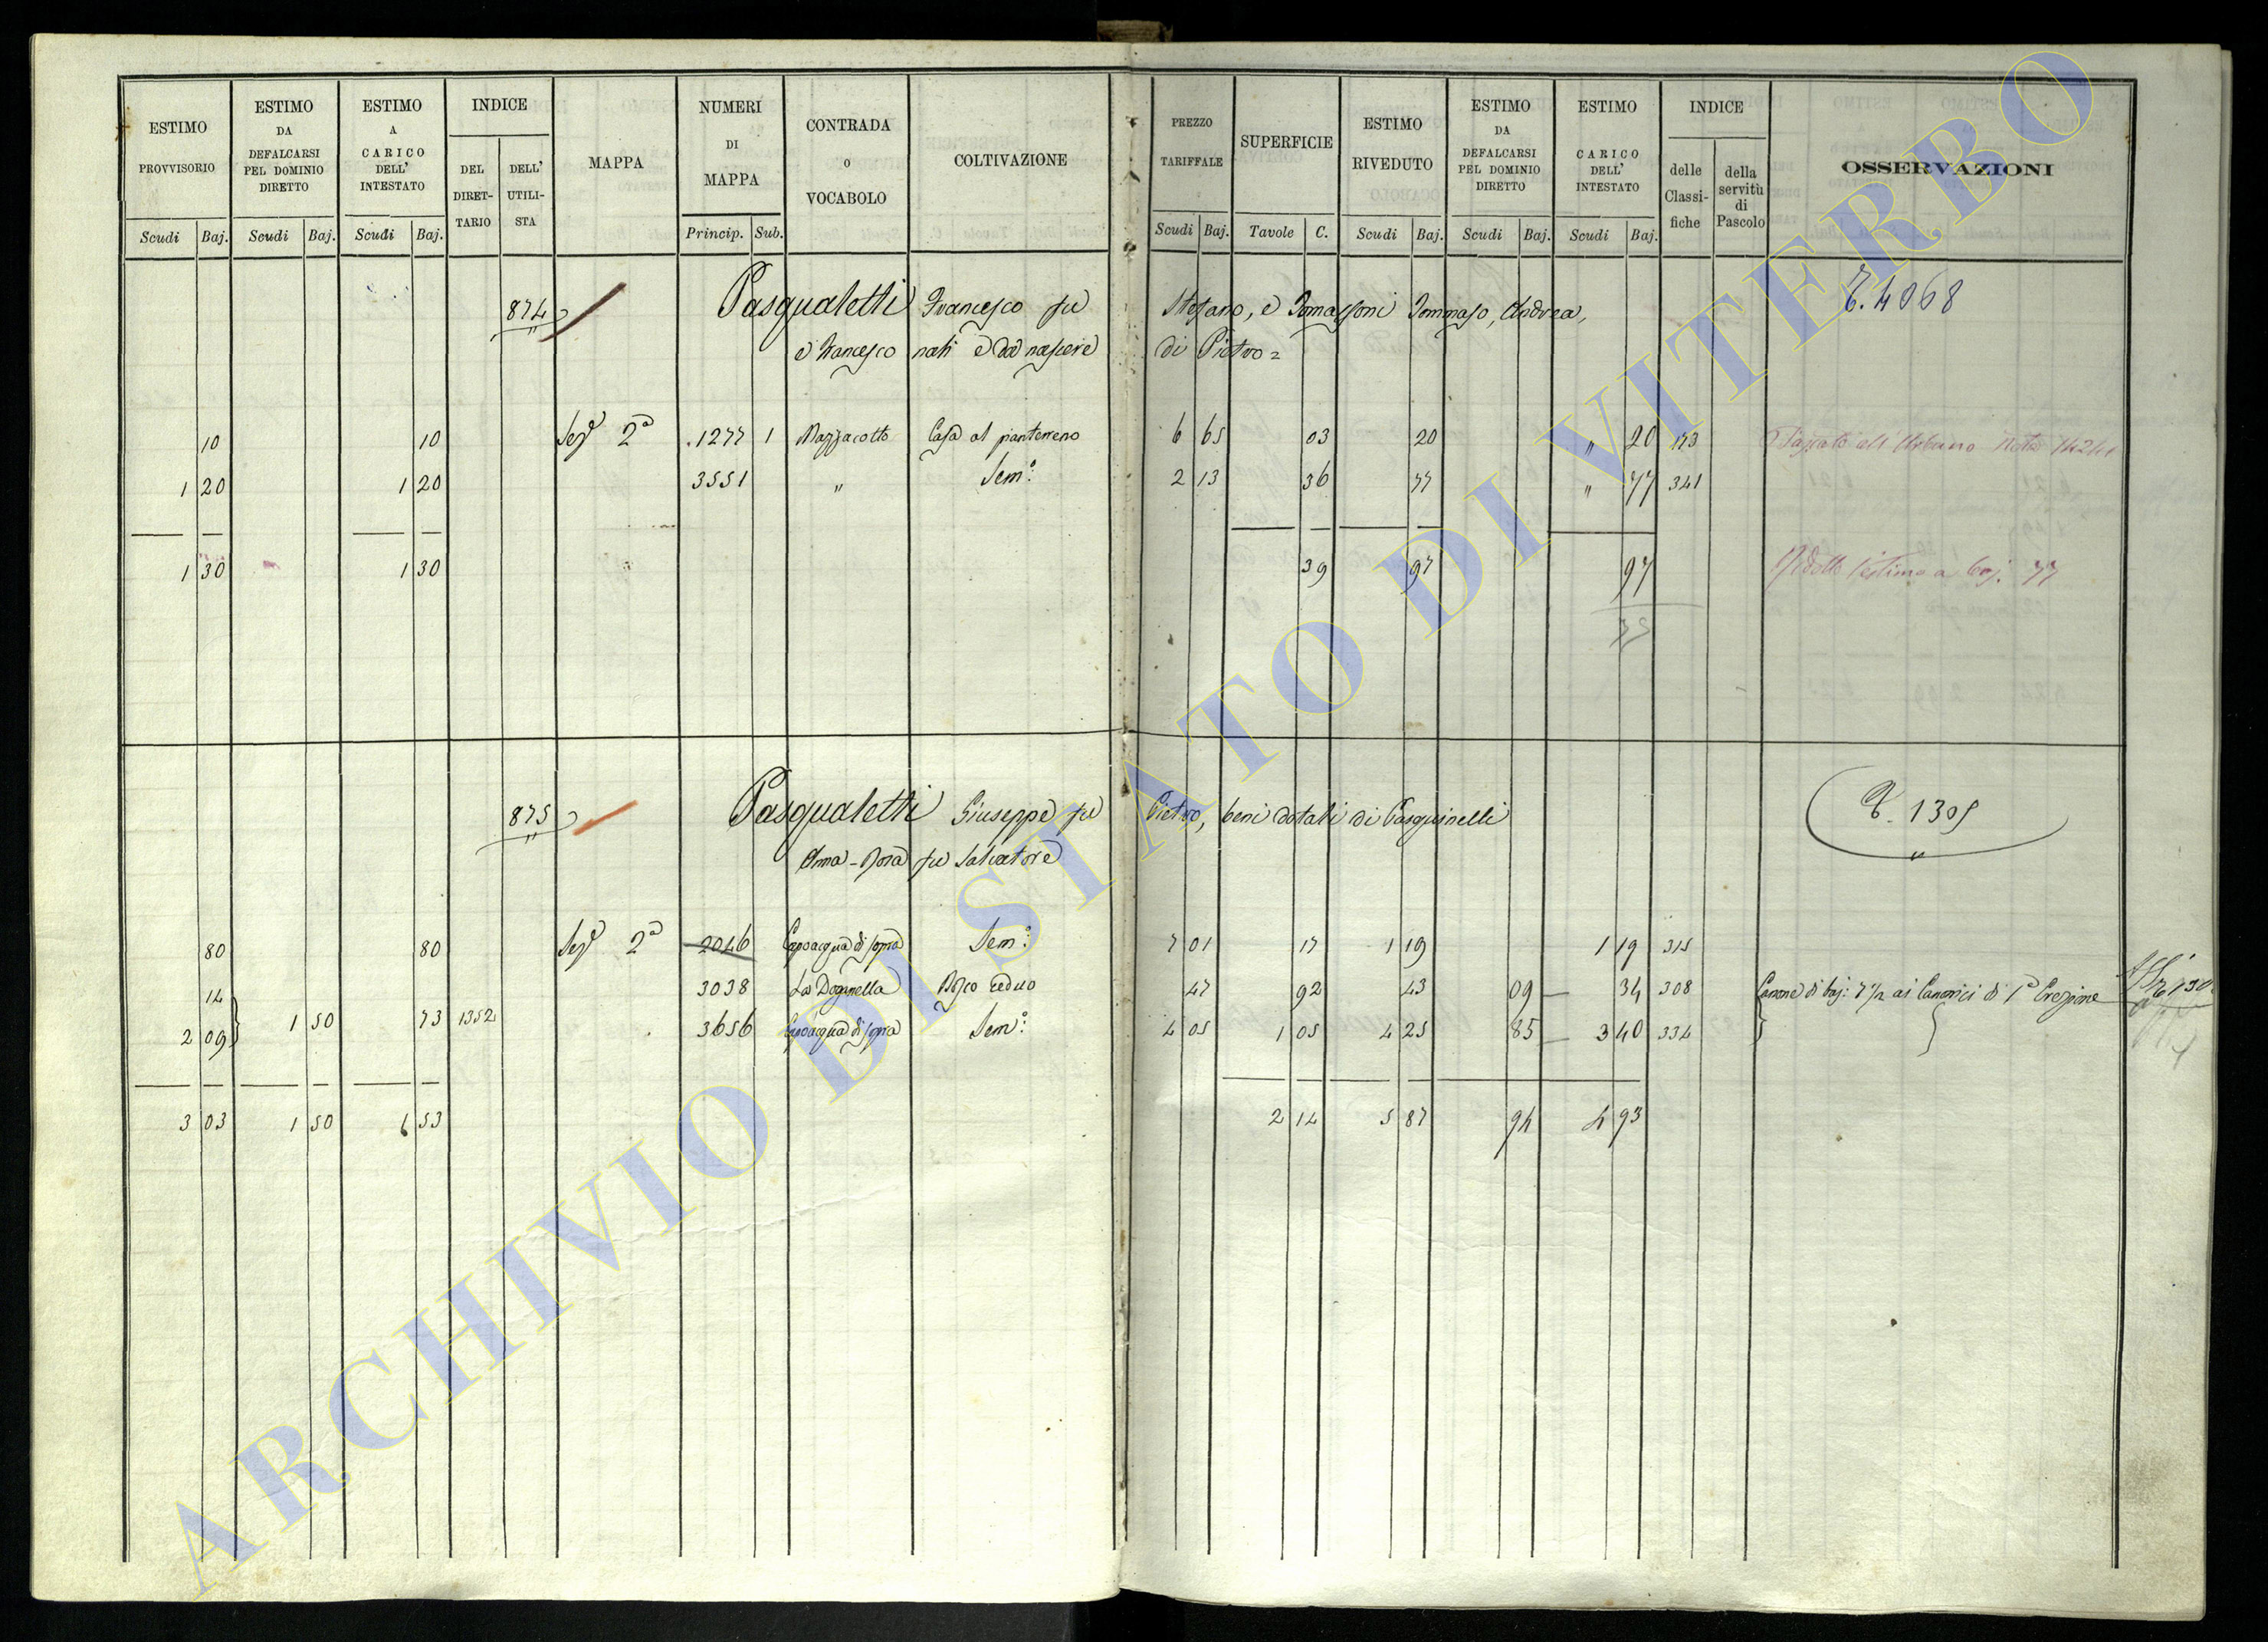 ESTIMO PROVVISORIO Scudi Baj.
ESTIMO DA DEFALCARSI PEL DOMINIO DIRETTO Scudi Baj.
ESTIMO A CARICO DELL' INTESTATO Scudi Baj.
INDICE DEL DIRET- TARIO DELL' UTILI- STA
MAPPA
NUMERI DI MAPPA Princip. Sub.
CONTRADA O VOCABOLO
COLTIVAZIONE
PREZZO TARIFFALE Scudi Baj.
SUPERFICIE Tavole C.
ESTIMO RIVEDUTO Scudi Baj.
ESTIMO DA DEFALCARSI PEL DOMINIO DIRETTO Scudi Baj.
ESTIMO A CARICO DELL' INTESTATO Scudi Baj.
INDICE delle Classi- fiche della servitù di Pascolo
OSSERVAZIONI
874 Pasqualetti Francesco fu Stefano, e Tomassoni Tommaso, Andrea, 4068
e Francesco nati e da nascere di Pietro =
10 10 Sez.e 2a 1277 1 Mazzacotto Casa al pianterreno 6 65 03 20 " 20 173 Passato all' Urbano Nota
1 20 1 20 3551 " Sem.o 2 13 36 77 " 77 341
1 30 1 30 39 97 97 Ridotto l'estimo a baj. 77
875 Pasqualetti Giuseppe fu Pietro, beni dotali di Pasquinelli 1305
Anna-Rosa fu Salvatore
80 80 Sez.e 2a 2046 Capoacqua di sopra Sem.o 7 01 17 1 19 1 19 315
14 3038 La Doganella Bosco ceduo 47 92 43 09 34 308 Canone di baj: 7 1/2 ai Canonici di 1a Erezione
2 09 1 50 73 1352 3656 Capoacqua di sopra Sem.o 4 05 1 05 4 25 85 3 40 334
3 03 1 50 1 53 2 14 5 87 94 4 93
ARCHIVIO DI STATO DI VITERBO